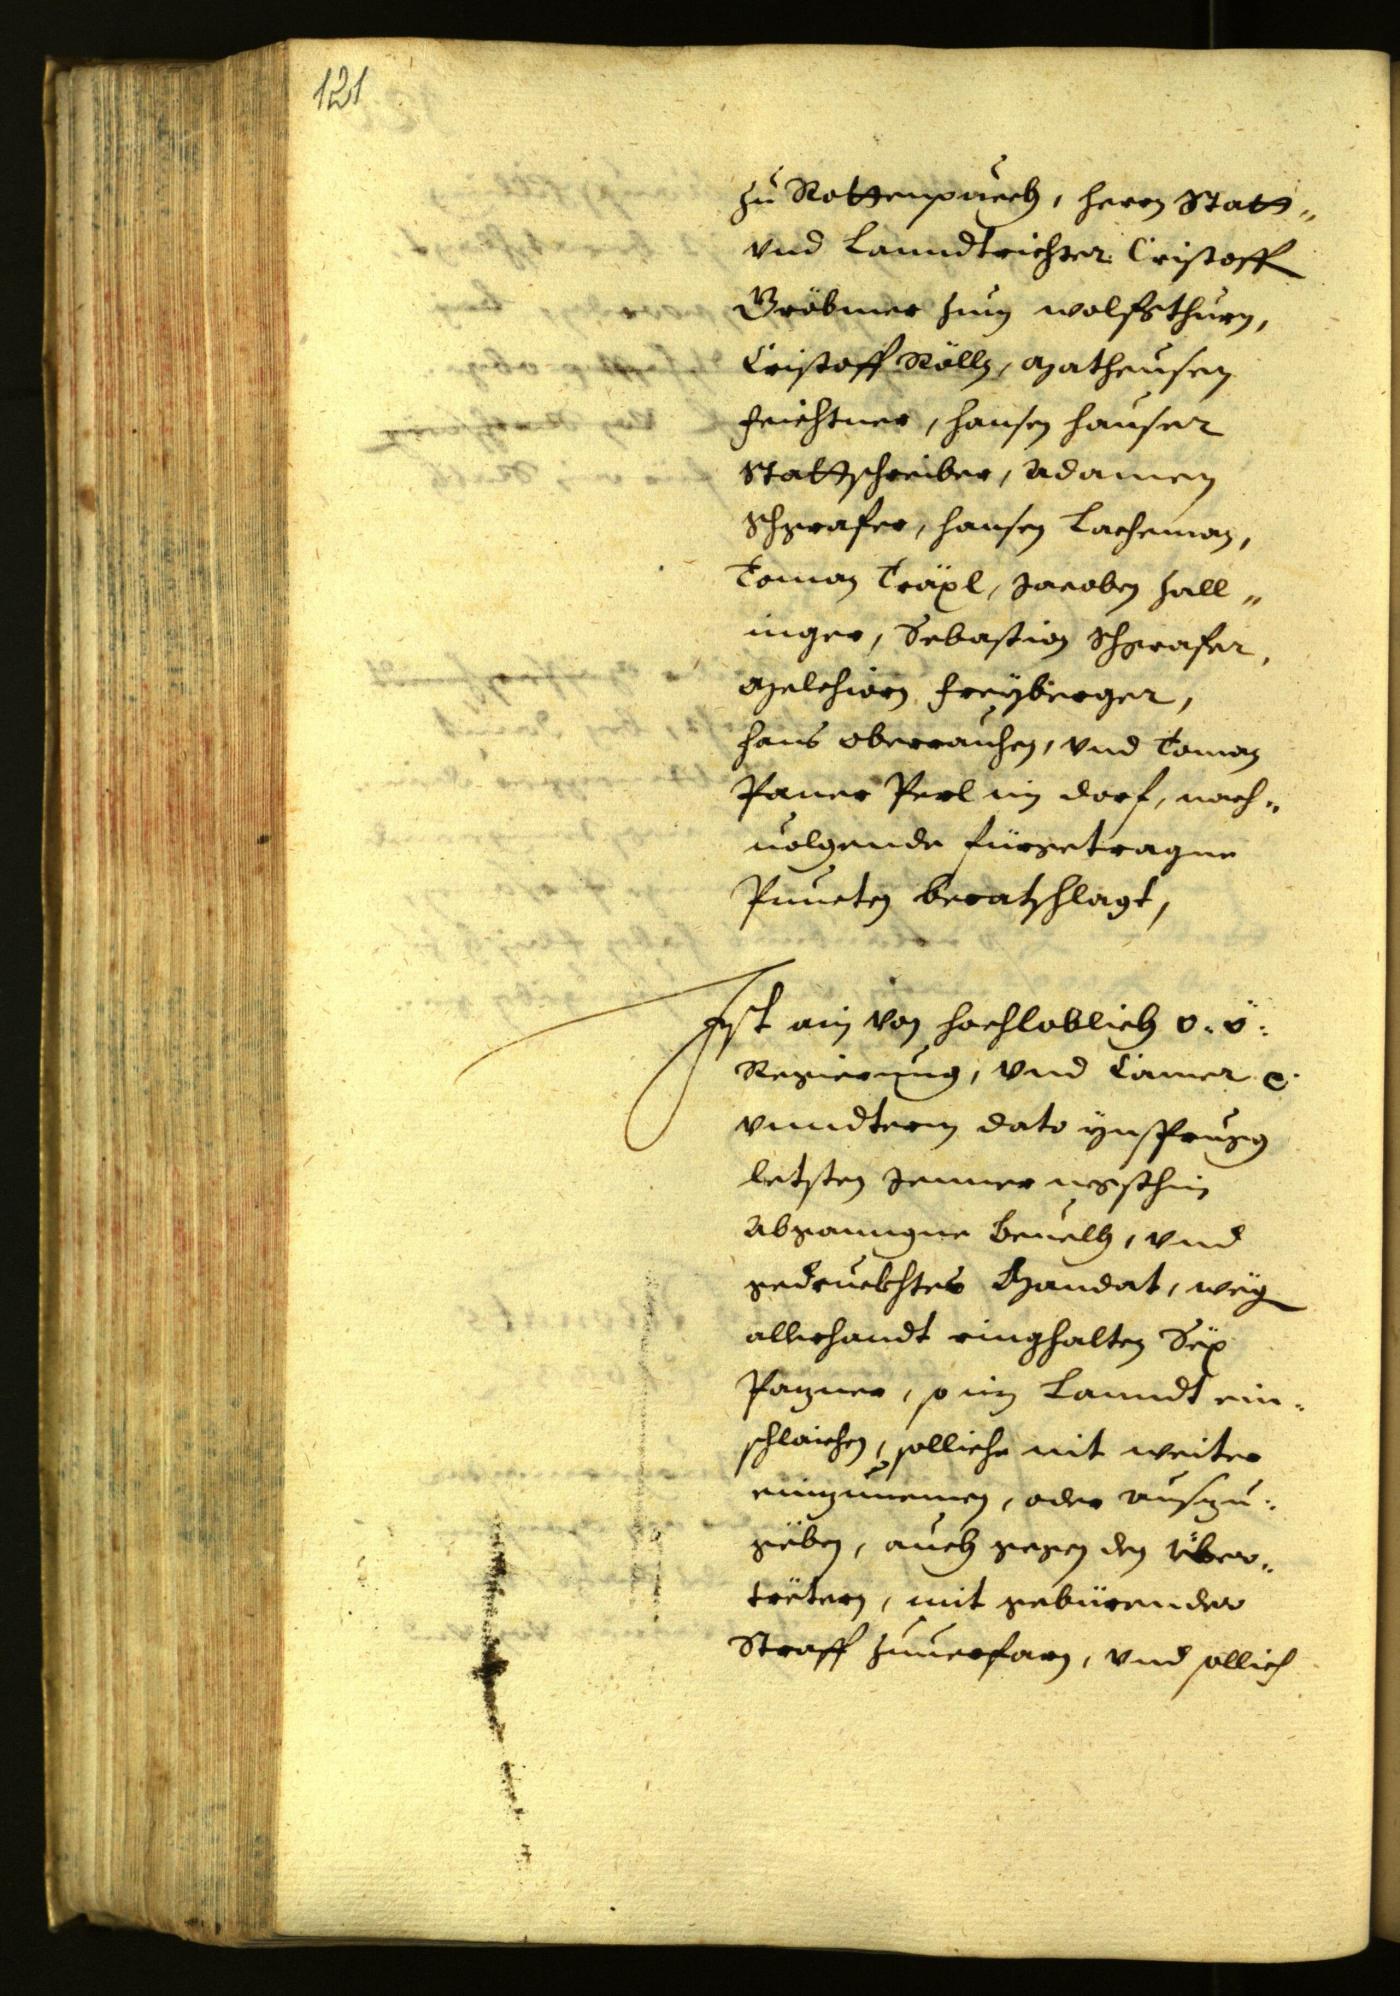 121
zu Rottenpuech, herrn Statt-
vnd Lanndtrichter Cristoff
Gröbmer zum wolfsthurn,
Cristoff Röll, Matheusen
Feichtner, Hansen Hauser
Stattschreiber, Adamen
Schgrafer, Hansen Lacheman,
Toman Träxl, Jacoben Hall-
inger, Sebastian Schgrafer,
Melchiorn Freyberger,
Hans Oberrauchen, vnd Toman
Paner Perl im dorf, nach-
uolgende fürgetragne
Puncten beratschlagt,
Ist ain von hochloblich o: ö:
Regierung, vnd Camer
vnndterm dato ynsprugg
letsten Jenner negsthin
abganngne beuelh, vnd
gedruckhtes Mandat, weg
allerhandt ringhalten Sëx
Pazner, so im Lanndt ein-
schlaichen, solliche nit weiter
einzunemen, oder auszu-
gëben, auch gegen den über-
trëtern, mit gebürender
Straff zuuerfarn, vnd sollich